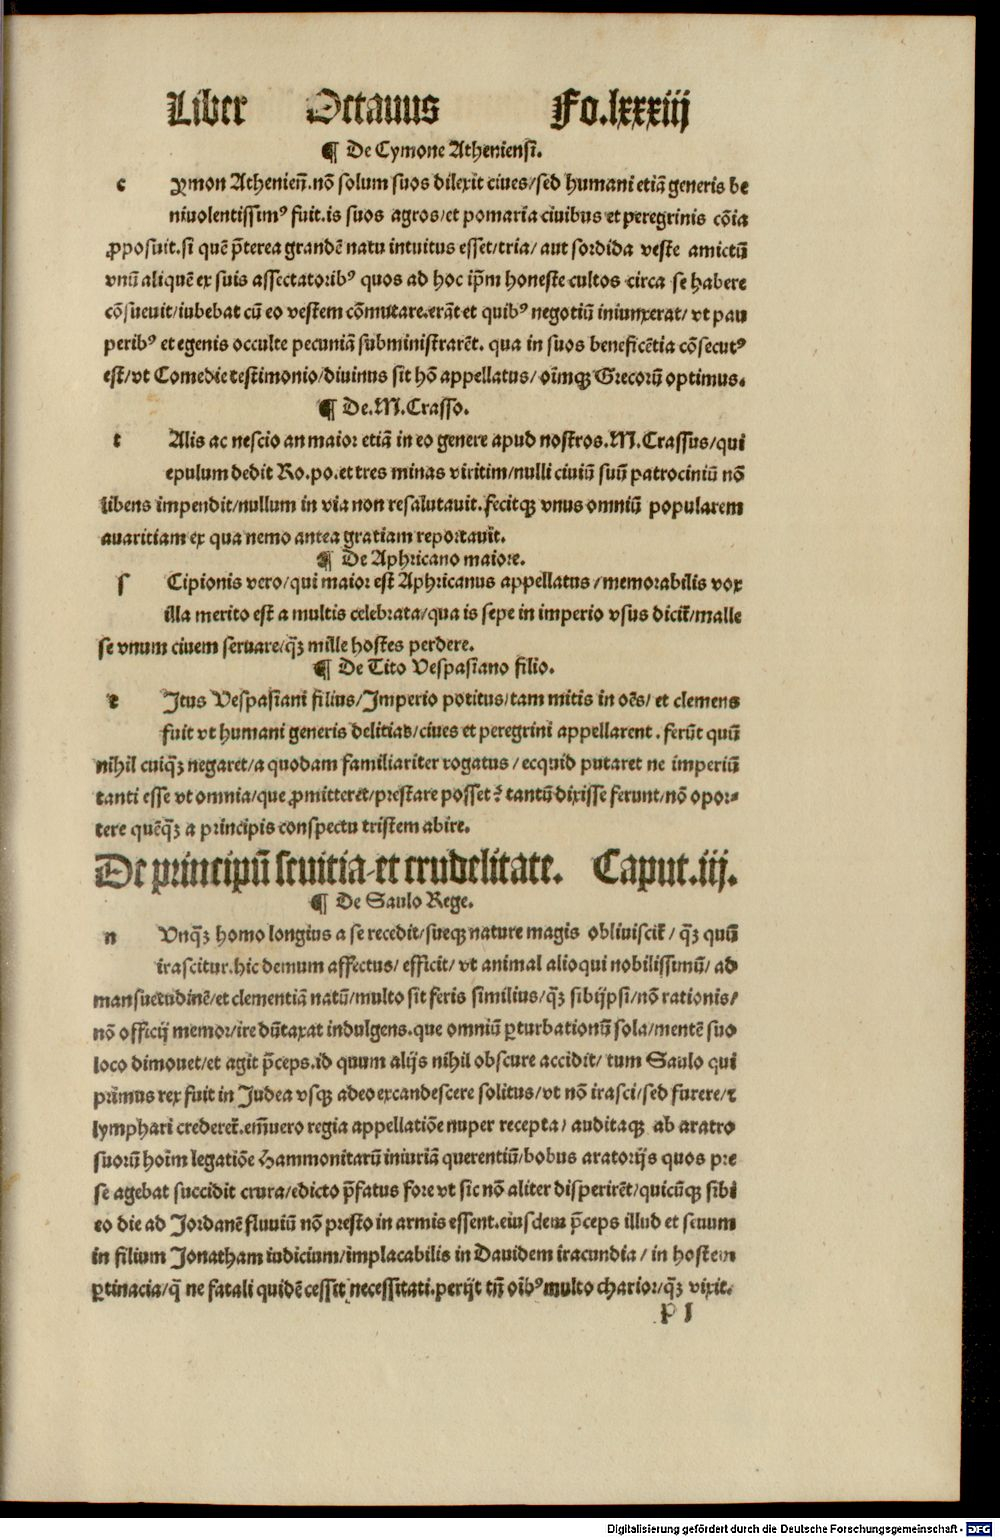 Liber Octauus Fo.lxxxiij
¶ De Cymone Atheniensi.
c ymon Athenieñ.nō solum suos dilexit ciues/sed humani etiā generis be
niuolentissimꝰ fuit.is suos agros/et pomaria ciuibus et peregrinis cōia
ꝓposuit.si quē p̄terea grandē natu intuitus esset/tria/aut sordida veste amictū
vnū aliquē ex suis assectatoribꝰ quos ad hoc ip̄m honeste cultos circa se habere
cōsueuit/iubebat cū eo vestem cōmutare.erāt et quibꝰ negotiū iniunxerat/vt pau
peribꝰ et egenis occulte pecuniā subministrarēt. qua in suos beneficētia cōsecutꝰ
est/vt Comedie testimonio/diuinus sit hō appellatus/oīmqꝫ Grecorū optimus.
¶ De.M.Crasso.
t Alis ac nescio an maior etiā in eo genere apud nostros.M.Crassus/qui
epulum dedit Ro.po.et tres minas viritim/nulli ciuiū suū patrociniū nō
libens impendit/nullum in via non resalutauit.fecitqꝫ vnus omniū popularem
auaritiam ex qua nemo antea gratiam reportauit.
¶ De Aphricano maiore.
s Cipionis vero/qui maior est Aphricanus appellatus/memorabilis vox
illa merito est a multis celebrata/qua is sepe in imperio vsus dicit̃/malle
se vnum ciuem seruare/qꝫ̄ mille hostes perdere.
¶ De Tito Vespasiano filio.
t Itus Vespasiani filius/Imperio potitus/tam mitis in oēs/et clemens
fuit vt humani generis delitias/ciues et peregrini appellarent.ferūt quū
nihil cuiqꝫ̄ negaret/a quodam familiariter rogatus/ecquid putaret ne imperiū
tanti esse vt omnia/que ꝓmitteret/prestare posset? tantū dixisse ferunt/nō opor-
tere quēqꝫ̄ a principis conspectu tristem abire.
De principū seuitia et crudelitate. Caput.iij.
¶ De Saulo Rege.
n Vnqꝫ̄ homo longius a se recedit/sueqꝫ nature magis obliuiscit̃/qꝫ̄ quū
irascitur.hic demum affectus/efficit/vt animal alioqui nobilissimū/ad
mansuetudinē/et clementiā natū/multo sit feris similius/qꝫ̄ sibijpsi/nō rationis/
nō officij memor/ire dūtaxat indulgens.que omniū ꝑturbationū sola/mentē suo
loco dimouet/et agit p̄ceps.id quum alijs nihil obscure accidit/tum Saulo qui
primus rex fuit in Judea vsqꝫ adeo excandescere solitus/vt nō irasci/sed furere/⁊
lymphari crederet̃.em̄uero regia appellatiōe nuper recepta/auditaqꝫ ab aratro
suorū hoīm legatiōe Hammonitarū iniuriā querentiū/bobus aratorijs quos pre
se agebat succidit crura/edicto p̄fatus fore vt sic nō aliter disperirēt/quicūqꝫ sibi
eo die ad Jordanē fluuiū nō presto in armis essent.eiusdem p̄ceps illud et seuum
in filium Jonatham iudicium/implacabilis in Dauidem iracundia/in hostem
ꝑtinacia/q̄ ne fatali quidē cessit necessitati.perijt tn̄ oībꝰ multo charior/qꝫ̄ vixit.
P I
Digitalisierung gefördert durch die Deutsche Forschungsgemeinschaft - DFG